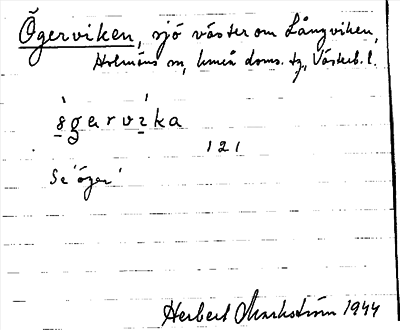 Ögerviken, sjö väster om Långviken,
Holmöns sn, Umeå doms. tg, Västerb. l.
ögarvika
121
Se 'öger'
Herbert Markström 1944